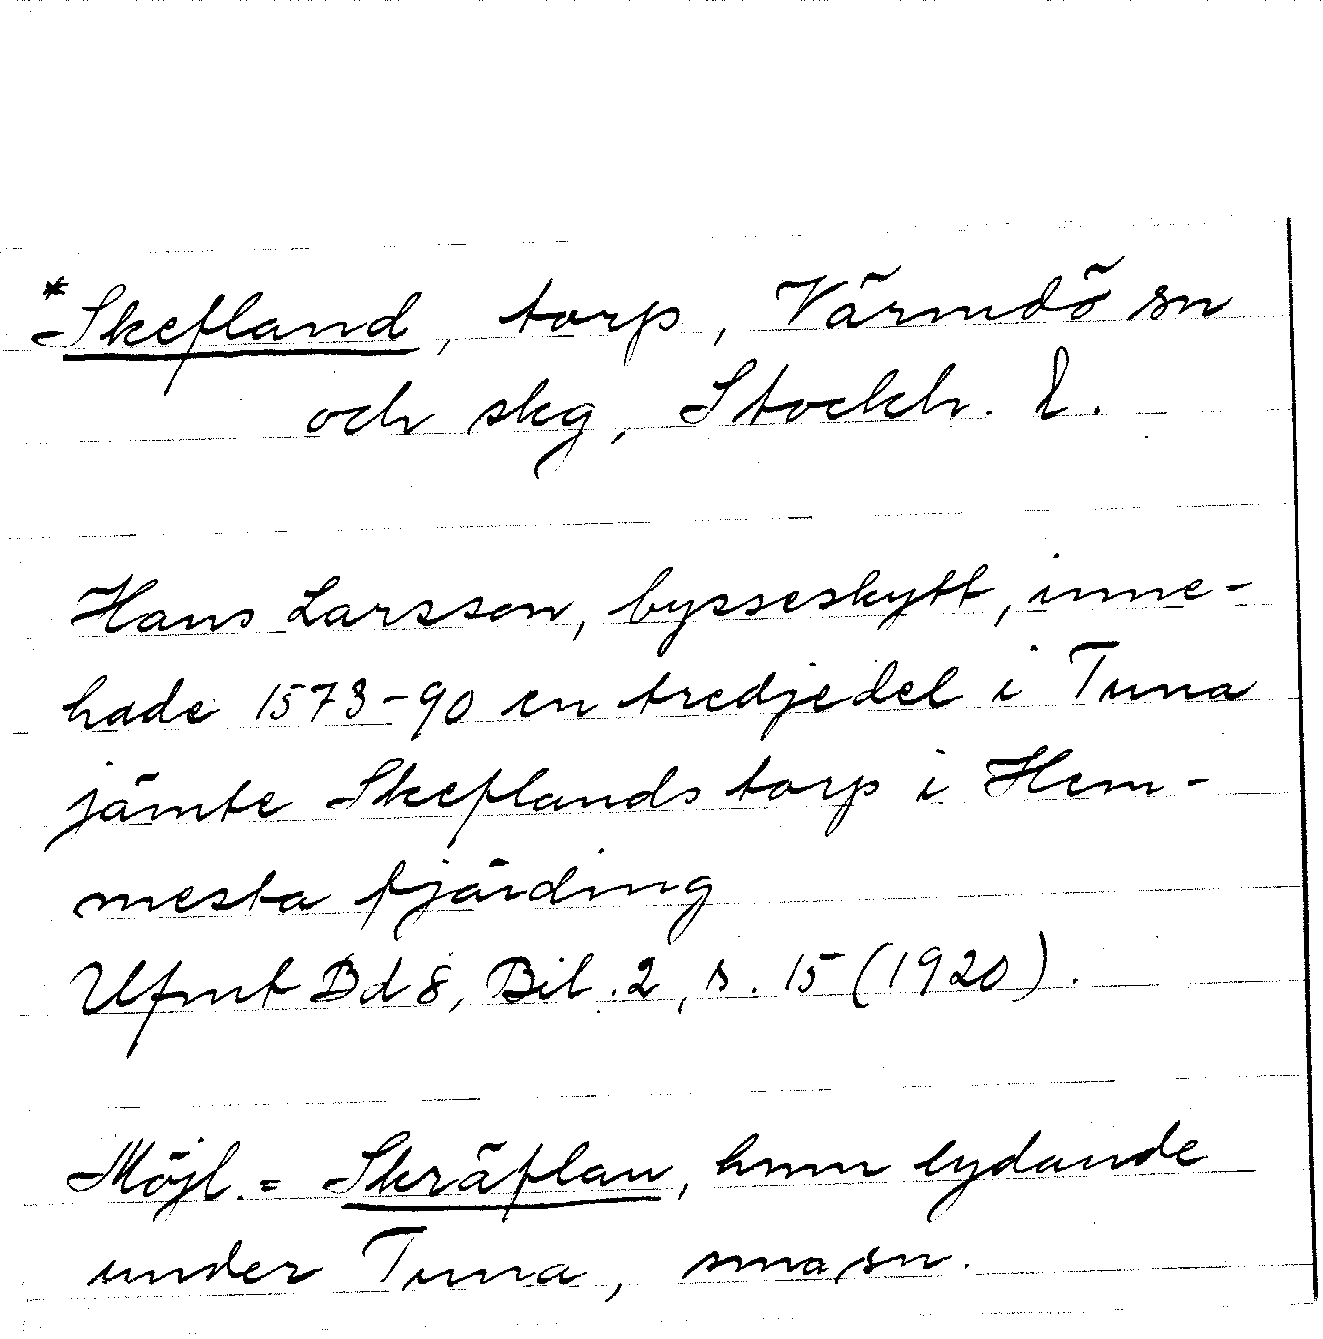 *Skefland, torp, Värmdö sn
och skg, Stockh. l.
Hans Larsson, bysseskytt, inne-
hade 1573-90 en tredjedel i Tuna
jämte Skeflands torp i Hem-
mesta fjärding
Ufmt Bd 8, Bil. 2, s. 15 (1920).
Möjl. = Skräflan, hmn lydande
under Tuna, sma sn.